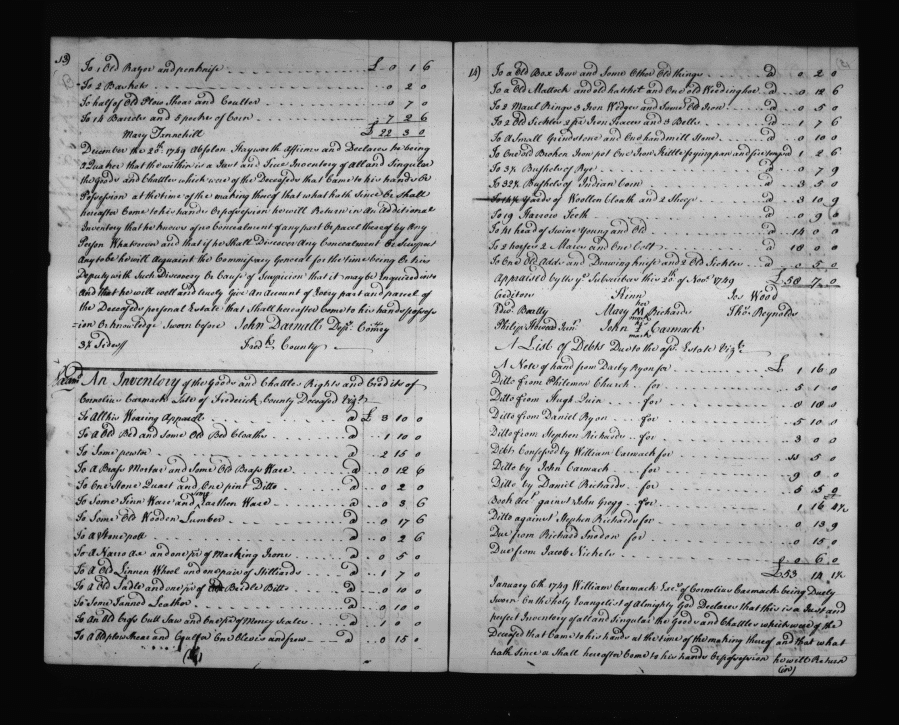 13)
To 1 Old Razor and penknife £ 0 1 6
To 2 Baskets 0 2 0
To half of Old Plow Shear and Coulter 0 7 0
To 14 Barrels and 5 pecks of Corn 7 2 6
Mary Tannehill £ 22 3 0
December the 20th 1749 Absolon Affirms and Declares he being
a Quaker that the within is a Just and True Inventory of All and Singular
the Goods and Chattles which were of the Deceaseds that Came to his hands &
Possession at the time of the making thereof that what hath Since or Shall
hereafter Come to his hands or possession he will Return in An Additional
Inventory that he knows of no Concealment of any part or parcel thereof by Any
Person Whatsoever and that if he Shall Discover Any Concealment or Suspect
Any to be he will Acquaint the Commissary General for the time being Or his
Deputy with such Discovery or Cause of Suspicion that it may be Enquired into
And that he will well and truly Give An Account of Every part and parcel of
the Deceaseds personal Estate that Shall hereafter Come to his hands possess
ion or knowledge Sworn before John Darnall Depy Comry
3½ Sides Fredk County
Exam An Inventory of the Goods and Chattles Rights and Credits of
Cornelius Carmack Late of Frederick County Deceased Vizt
To All his Wearing Apparell a £ 3 10 0
To A Old Bed and Some Old Bed Cloaths a 1 10 0
To Some pewter a 2 15 0
To A Brass Mortar and Some Old Brass Ware a 0 12 6
To One Stone Quart and One pint Ditto a 0 2 0
To Some Tinn Ware and Some Earthen Ware a 0 3 6
To Some Old Wooden Lumber a 0 17 6
To A Stone pott a 0 2 6
To A Narro Ax and one pr of Marking Irons a 0 5 0
To A Old Linnen Wheel and one pair of Stilliards a 1 7 0
To A Old Sadle and one pr of Bridle Bitts a 0 10 0
To Some Tanned Leather a 0 10 0
To An Old Cross Cutt Saw and One pr of Money Scales a 1 0 0
To A Old plow Shears and Coulter One Clevis and a 0 15 0
14)
To a Old Box Iron and Some Other Old things a 0 2 0
To a Old Mattock and old hatchet and One old Weeding hoe a 0 12 6
To 2 Maul Rings 3 Iron Wedges and Some Old Iron a 0 5 0
To 2 Old Sickles 2 pr Iron Traces and 3 Bells a 1 7 6
To A Small Grindstone and One handmill Stone a 0 10 0
To One old Broken Iron pot One Iron Kettle frying pan and fire tongs a 1 2 6
To 3½ Bushels of Rye a 0 7 9
To 32½ Bushels of Indian Corn a 3 5 0
Yards of Woollen Cloath and 2 Sheep a 3 10 9
To 19 Harrow Teeth a 0 9 6
To 41 head of Swine Young and Old a 14 0 0
To 2 horses 2 Mares and One Colt a 18 0 0
To One Old Adds and Drawing knife and 2 Old Sickles a 0 5 0
Appraised by us ye Subscribers this 20th of Novr 1749 £ 58 17 0
Creditors Kinn Jos Wood
Edwd Beatty Mary M Richards Thos Reynolds
her
mark
Philip Howard Junr John Carmack
his
mark
A List of Debts Due to the afd Estate Vizt
A Note of hand from Darby Ryon for £ 1 16 0
Ditto from Philemon Church for 5 1 0
Ditto from Hugh Quin for 0 18 0
Ditto from Daniel Ryon for 5 10 0
Ditto from Stephen Richards for 3 0 0
Debt Confessed by William Carmack for 5 0
Ditto by John Carmack for 9 0 0
Ditto by Daniel Richards for 5 5 0
Book Acct gainst John Gregg for 1 16 4½
Ditto against Stephen Richards for 0 13 9
Due from Richard Snodon for 0 15 0
Due from Jacob Nichols 0 6 0
£ 53 14 1½
January 6th 1749 William Carmack Exr of Cornelius Carmack being Duely
Sworn On the holy Evangelist of Almighty God Declares that this is a Just and
perfect Inventory of all and Singular the Goods and Chattles which were of the
Deceased that Came to his hands at the time of the making thereof and that what
hath Since or Shall hereafter Come to his hands or possession he will Return
(in)